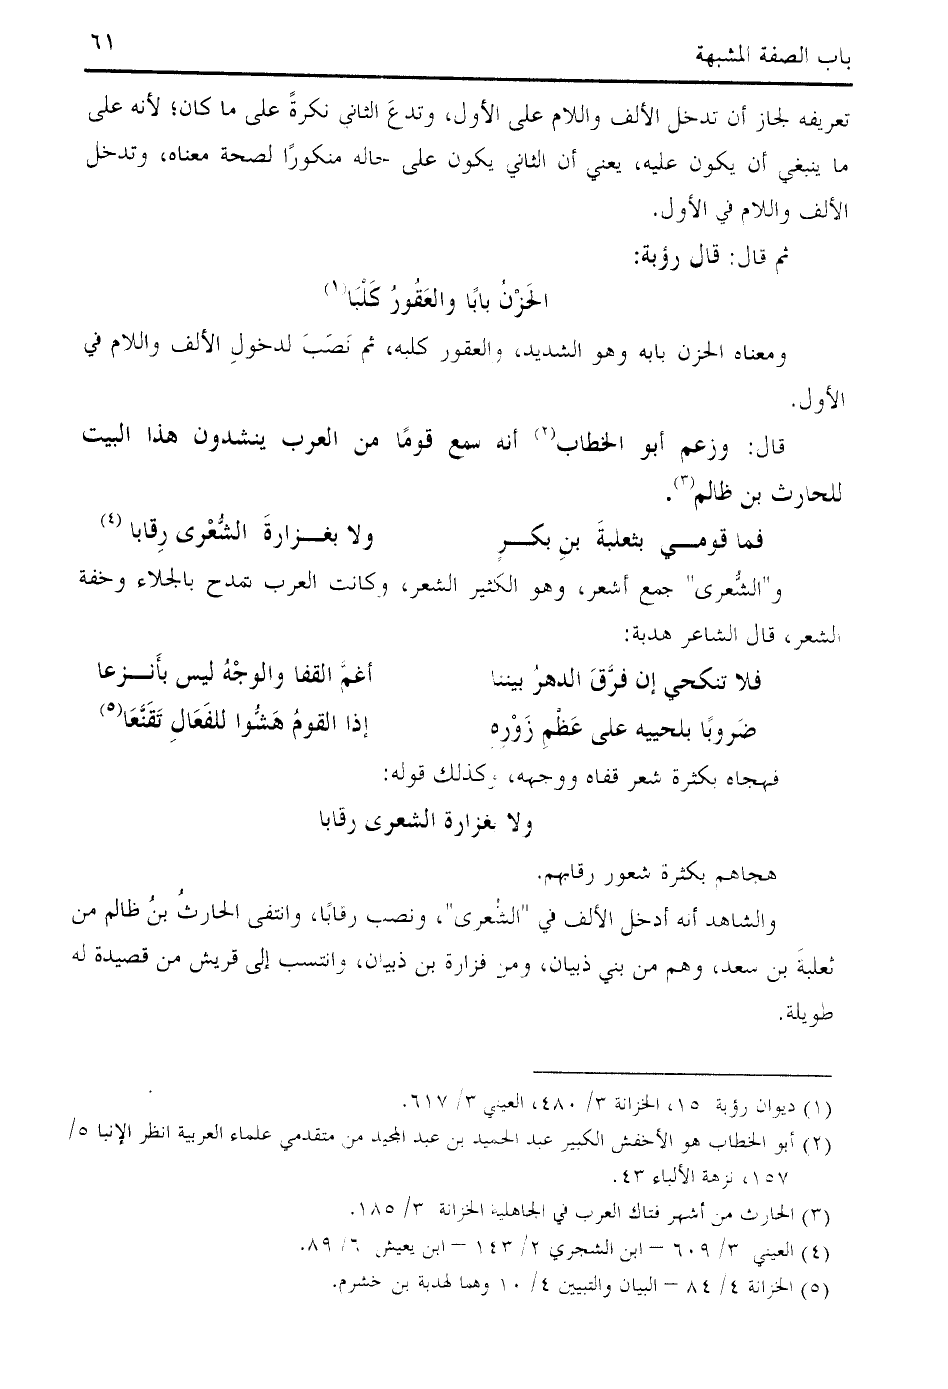 باب الصفة المشبهة
٦١
تعريفه لجاز أن تدخل الألف واللام على الأول، وتدعَ الثاني نكرةً على ما كان؛ لأنه على
ما ينبغي أن يكون عليه، يعني أن الثاني يكون على حاله منكورًا لصحة معناه، وتدخل
الألف واللام في الأول.
ثم قال: قال رؤبة:
الحَزْنُ بابًا والعَقُورُ كَلْبَا(١)
ومعناه الحزن بابه وهو الشديد، والعقور كلبه، ثم نَصَبَ لدخولِ الألف واللام في
الأول.
قال: وزعم أبو الخطاب(٢) أنه سمع قومًا من العرب ينشدون هذا البيت
للحارث بن ظالم(٣).
فما قومي بثعلبةَ بنِ بكرٍ ولا بغزارةَ الشُّعْرى رِقابا (٤)
و"الشُّعرى" جمع أشعر، وهو الكثير الشعر، وكانت العرب تمدح بالجلاء وخفة
الشعر، قال الشاعر هدبة:
فلا تنكحي إن فرَّقَ الدهرُ بيننا أغمَّ القفا والوجْهُ ليس بأَنزعا
ضَروبًا بلحييه على عَظْمِ زَوْرِه إذا القومُ هَشُّوا للفَعَالِ تَقَنَّعَا(٥)
فهجاه بكثرة شعر قفاه ووجهه، وكذلك قوله:
ولا بغزارة الشعرى رقابا
هجاهم بكثرة شعور رقابهم.
والشاهد أنه أدخل الألف في "الشُّعرى"، ونصب رقابًا، وانتفى الحارثُ بنُ ظالم من
ثعلبةَ بن سعد، وهم من بني ذبيان، ومن فزارة بن ذبيان، وانتسب إلى قريش من قصيدة له
طويلة.
(١) ديوان رؤبة ١٥، الخزانة ٣/ ٤٨٠، العيني ٣/ ٦١٧.
(٢) أبو الخطاب هو الأخفش الكبير عبد الحميد بن عبد المجيد من متقدمي علماء العربية انظر الإنبا ٥/
١٥٧، نزهة الألباء ٤٣.
(٣) الحارث من أشهر فتاك العرب في الجاهلية الخزانة ٣/ ١٨٥.
(٤) العيني ٣/ ٦٠٩ – ابن الشجري ٢/ ١٤٣ – ابن يعيش ٦/ ٨٩.
(٥) الخزانة ٤/ ٨٤ – البيان والتبيين ٤/ ١٠ وهما لهدبة بن خشرم.